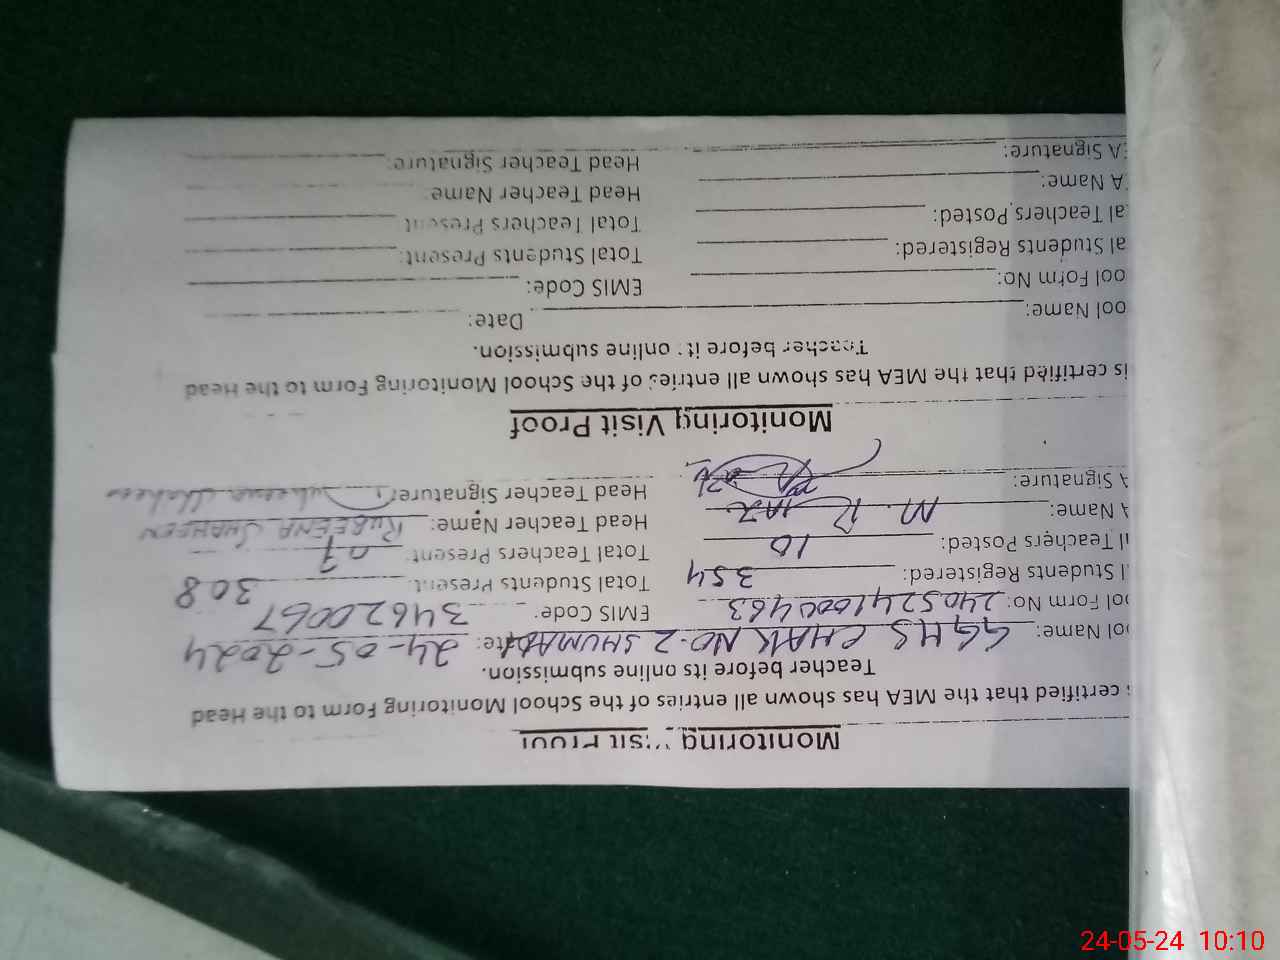 Monitoring Visit Proof
certified that the MEA has shown all entries of the School Monitoring Form to the Head
Teacher before its online submission.
ool Name: GGHS CHAK NO.2 SHUMALI Date: 24-05-2024
ool Form No: 2405241000463 EMIS Code: 34620067
Students Registered: 354 Total Students Present: 308
Teachers Posted: 10 Total Teachers Present: 07
A Name: M. RIAZ Head Teacher Name: RUBEENA SHAHEEN
A Signature: Head Teacher Signature: Rubeena Shaheen
Monitoring Visit Proof
is certified that the MEA has shown all entries of the School Monitoring Form to the Head
Teacher before its online submission.
ool Name: Date:
ool Form No: EMIS Code:
al Students Registered: Total Students Present:
al Teachers Posted: Total Teachers Present
EA Name: Head Teacher Name
EA Signature: Head Teacher Signature:
24-05-24 10:10